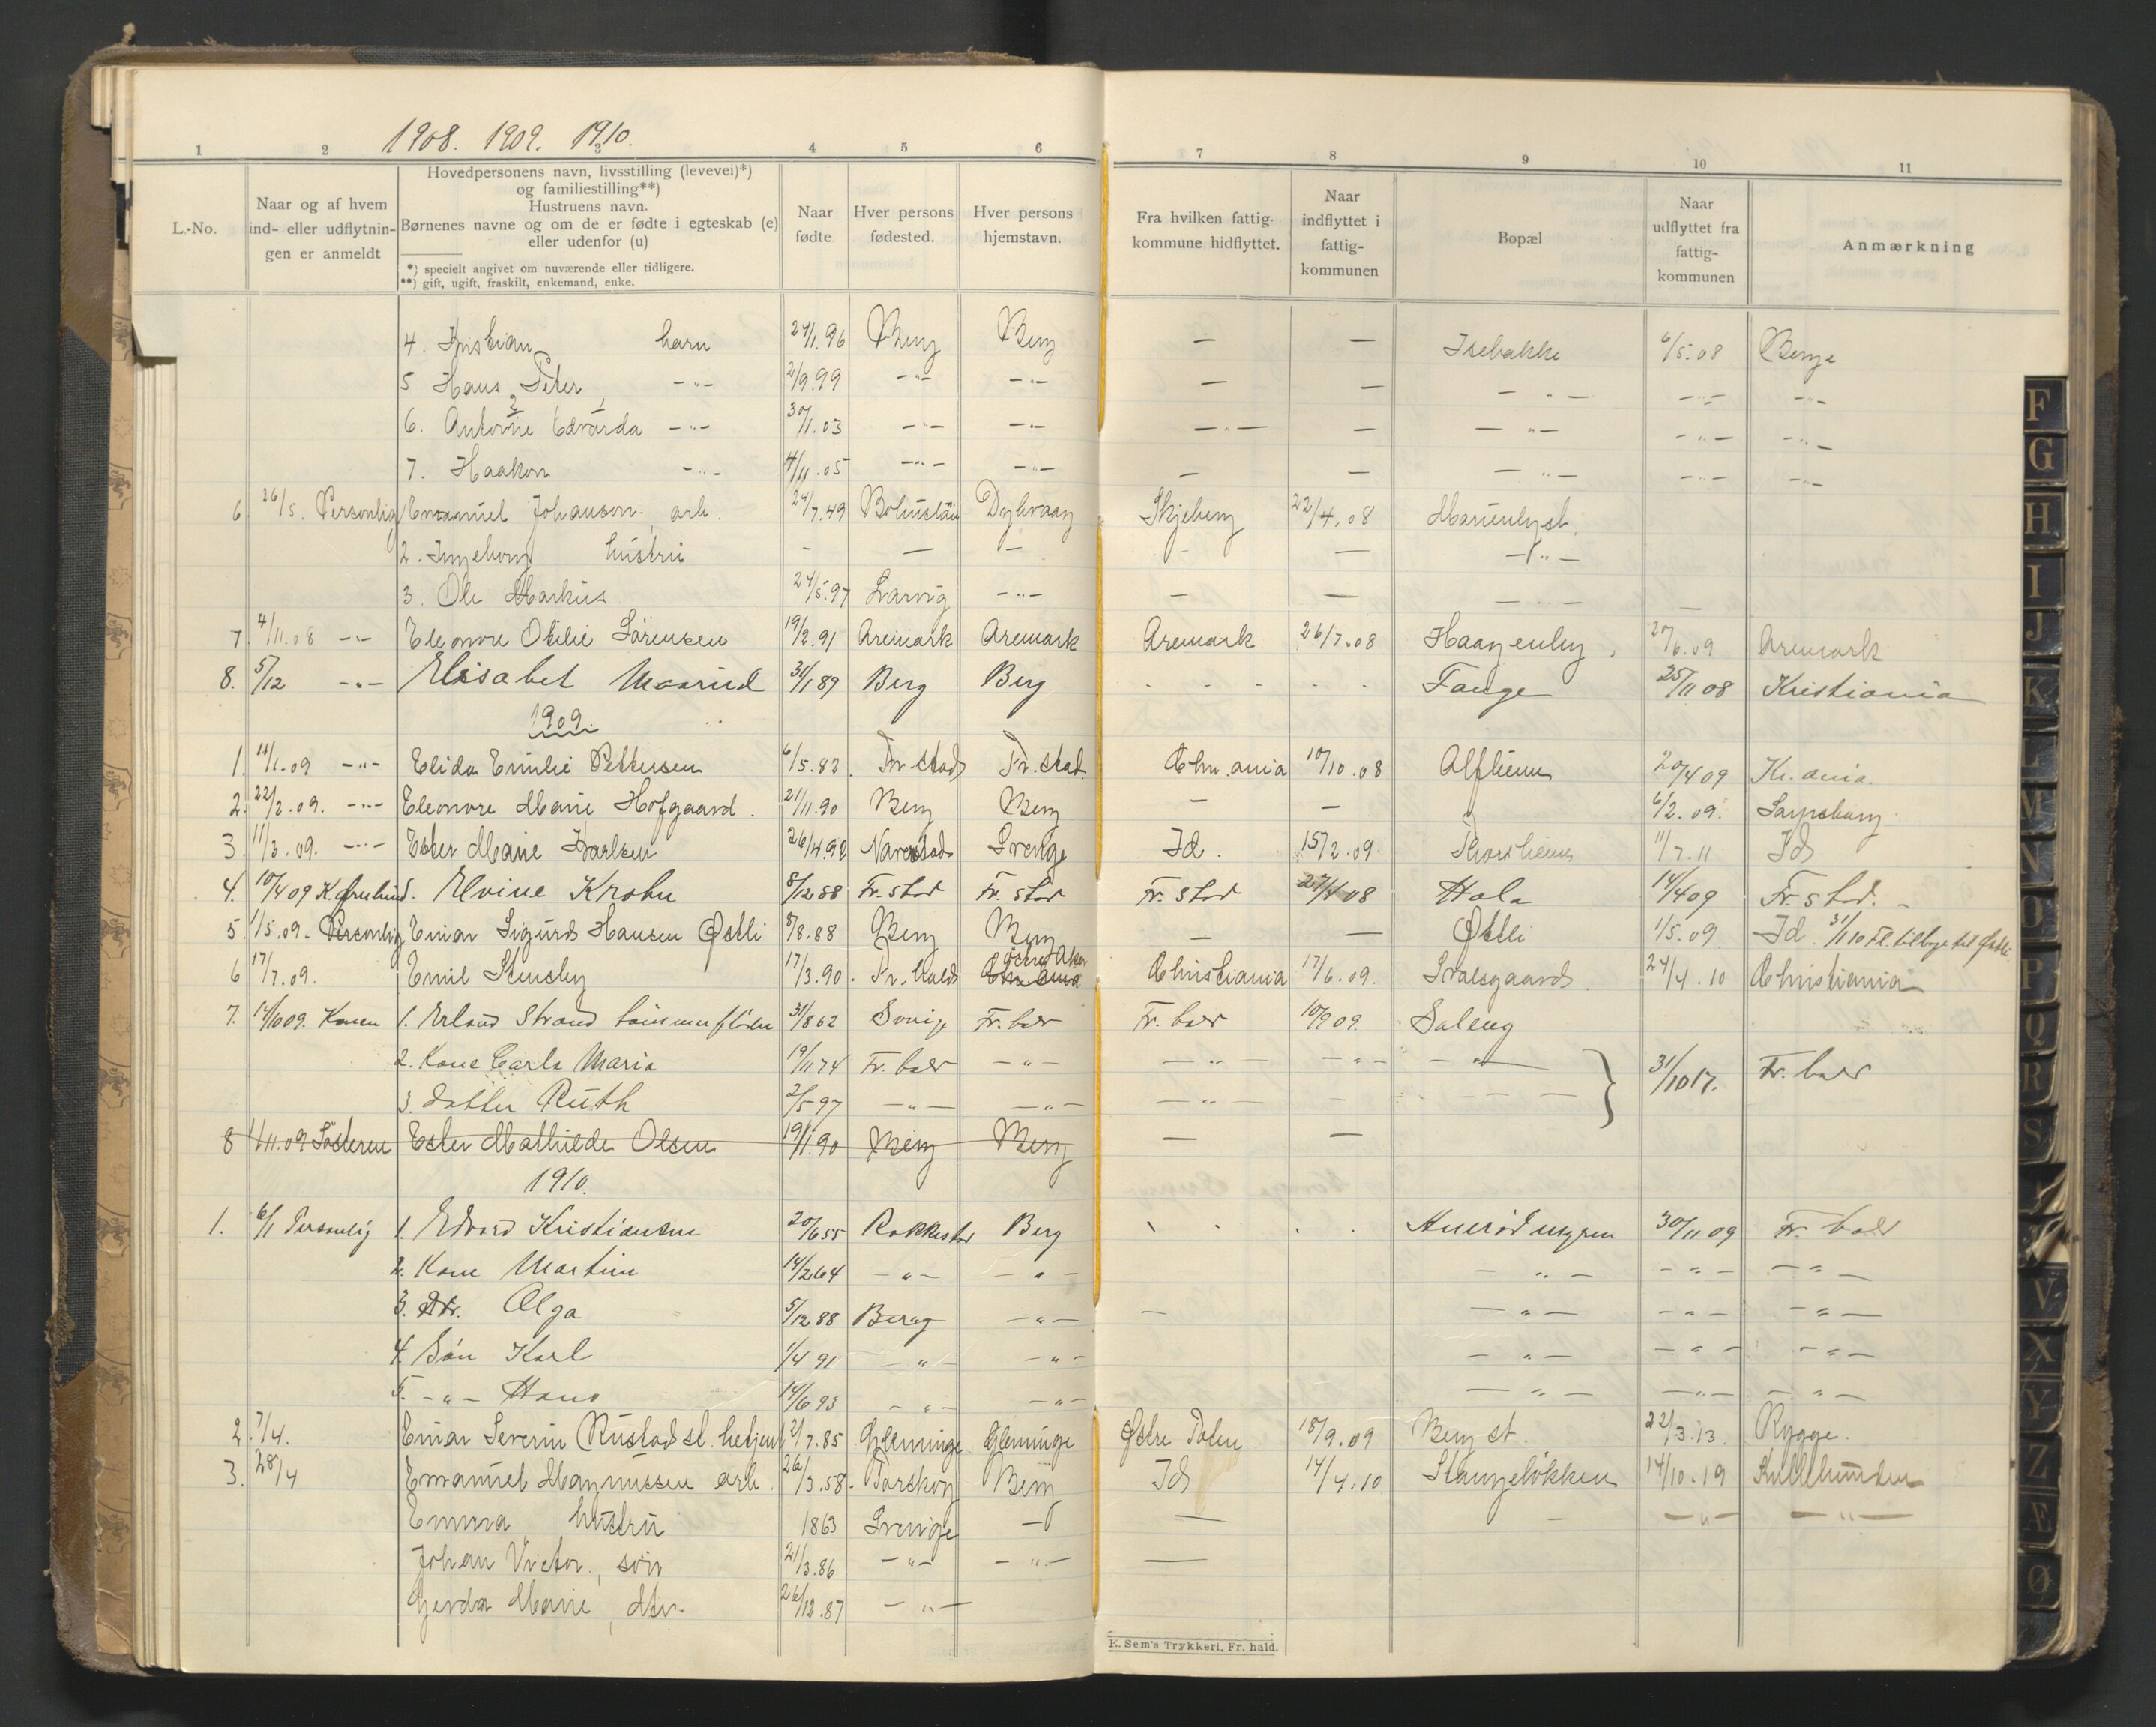 1908. 1909. 1910.
1 2 3 4 5 6 7 8 9 10 11
L.-No.
Naar og af hvem ind- eller udflytnin- gen er anmeldt
Hovedpersonens navn, livsstilling (levevei)*)
og familiestilling**)
Hustruens navn.
Børnenes navne og om de er fødte i egteskab (e)
eller udenfor (u)
*) specielt angivet om nuværende eller tidligere.
**) gift, ugift, fraskilt, enkemand, enke.
Naar fødte.
Hver persons fødested.
Hver persons hjemstavn.
Fra hvilken fattig- kommune hidflyttet.
Naar indflyttet i fattig- kommunen
Bopæl
Naar udflyttet fra fattig- kommunen
Anmærkning
4. Kristian barn 24/1.96 Berg Berg — — Isebakke 6/5.08 Berge
5 Hans Peter, -"- 2/9.99 -"- -"- — — -"- -"- -"-
6. Antonie Edvarda -"- 30/1.03 -"- -"- -"- — -"- -"- -"-
7. Haakon -"- 4/11.05 -"- -"- — — -"- -"- -"-
6. 26/5. Personlig Emanuel Johanson, arb. 24/7.49 Bohuslän Skjeberg 22/4.08 Marienlyst.
2. Ingeborg hustru - — — - — -"-
3. Ole Markus 24/5.97 Larvig -"- — — -"- —
7. 4/11.08 -"- Eleonore Otilie Sörensen 19/2.91 Aremark Aremark Aremark 26/7.08 Haagenby, 20/6.09 Aremark
8. 5/12 -"- Elisabet Maarud 31/1 89 Berg Berg - - - - - Fange 25/11 08 Kristiania
1909.
1. 11/1.09 -"- Elida Emilie Pettersen 6/5.82. Fr. stad Fr. stad Chr. ania 10/10.08 Alfheim 20/4 09 Kr. ania.
2. 22/2.09. -"- Eleonore Marie Hofgaard. 21/11.90 Berg Berg — — 6/2.09. Sarpsborg
3. 11/3.09. -"- Ester Marie Karlsen 26/4.92 Naverstad Sverige Id. 15/2.09. Thorsheim 11/7.11 Id
4. 10/4 09 Elvine Krohn 8/12 88 Fr. stad Fr. stad Fr. stad Hola 14/4 09 Fr. stad. -
5. 1/5.09. Personlig Einar Sigurd Hansen Østli 8/8.88 Berg Berg — — Østli 1/5.09. Id. 31/1 10 Fl. tilbage til Østli
6 17/7.09. Emil Stensby 17/3.90. Fr. hald Chr. ania Østre Aker Christiania 17/6.09. 24/4.10 Christiania
7. 14/6 09. Konen 1. Erland Strand tømmerfløder 31/8 62 Sverige Fr. hald Fr. hald 10/9 09. Saleng
2. Kone Carla Maria 19/11 74 Fr. hald -"- -"- -"- -"- } 31/10 17. Fr. hald
3. datter Ruth 2/5 97 -"- -"- -"- - - - -
8 1/11.09 Søsteren Ester Mathilde Olsen 19/1.90 Berg Berg — —
1910.
1. 6/1 Personlig 1. Edvard Kristiansen 20/6 55 Rakkestad Berg 30/11 09 Fr. hald
2. Kone Martine 14/2 64 -"- -"- -"- -"- -"-
3. Dtr. Olga 5/12 88 Berg -"- — -"- -"- -"-
4. Søn Karl 1/4 91 -"- -"- -"- -"- -"-
5. -"- Hans 14/6 93 -"- -"- -"- -"- -"-
2. 7/4. Einar Severin Rustad st. betjent 2/7.85 Glemminge Glemminge Østre Toten 18/9.09 Berg st. 22/3.13. Rygge.
3. 28/4 Emanuel Magnussen arb. 26/3.58. Torskog Berg Id 14/4.10 Stangeløkken 14/10.19
Emma, hustru 1863 Sverige — — - -"- -"-
Johan Victor, søn 21/3.86 -"- -"- —
Gerda Marie, dtr. 26/12.87 -"-
E. Sem's Trykkeri, Fr. hald.
F
G
H
I
J
K
L
M
N
O
P
Q
R
S
V
X
Y
Z
Æ
Ø